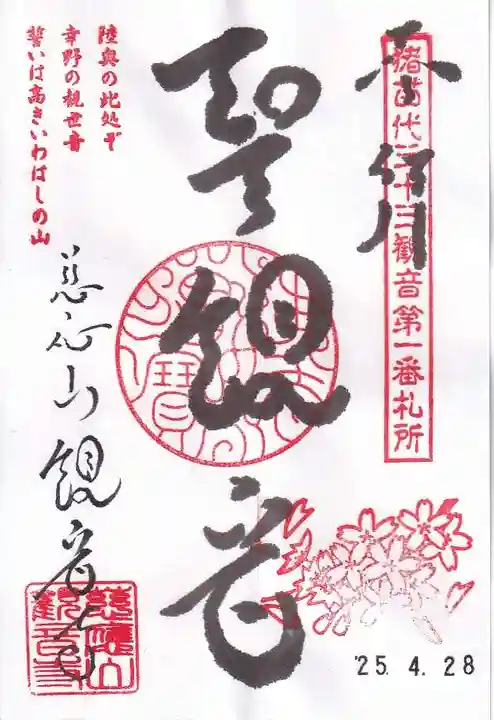 奉拝
猪苗代三十三観音第一番札所
聖観音
陸奥の此処ぞ
寺野の観世音
誓いは高きいわはしの山
慈応山観音寺
慈應山観音寺
'25. 4. 28